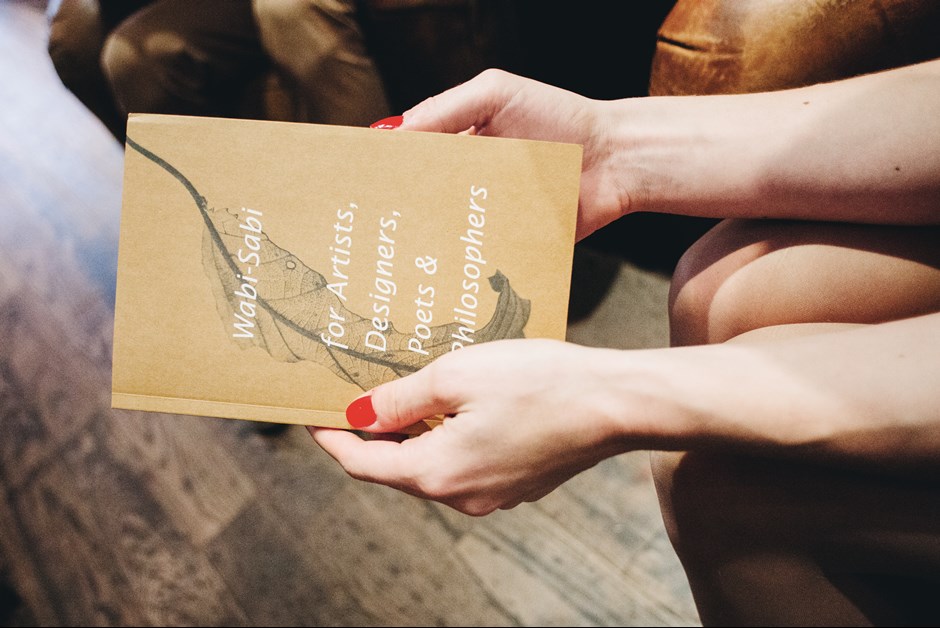 Wabi-Sabi
for Artists,
Designers,
Poets &
Philosophers